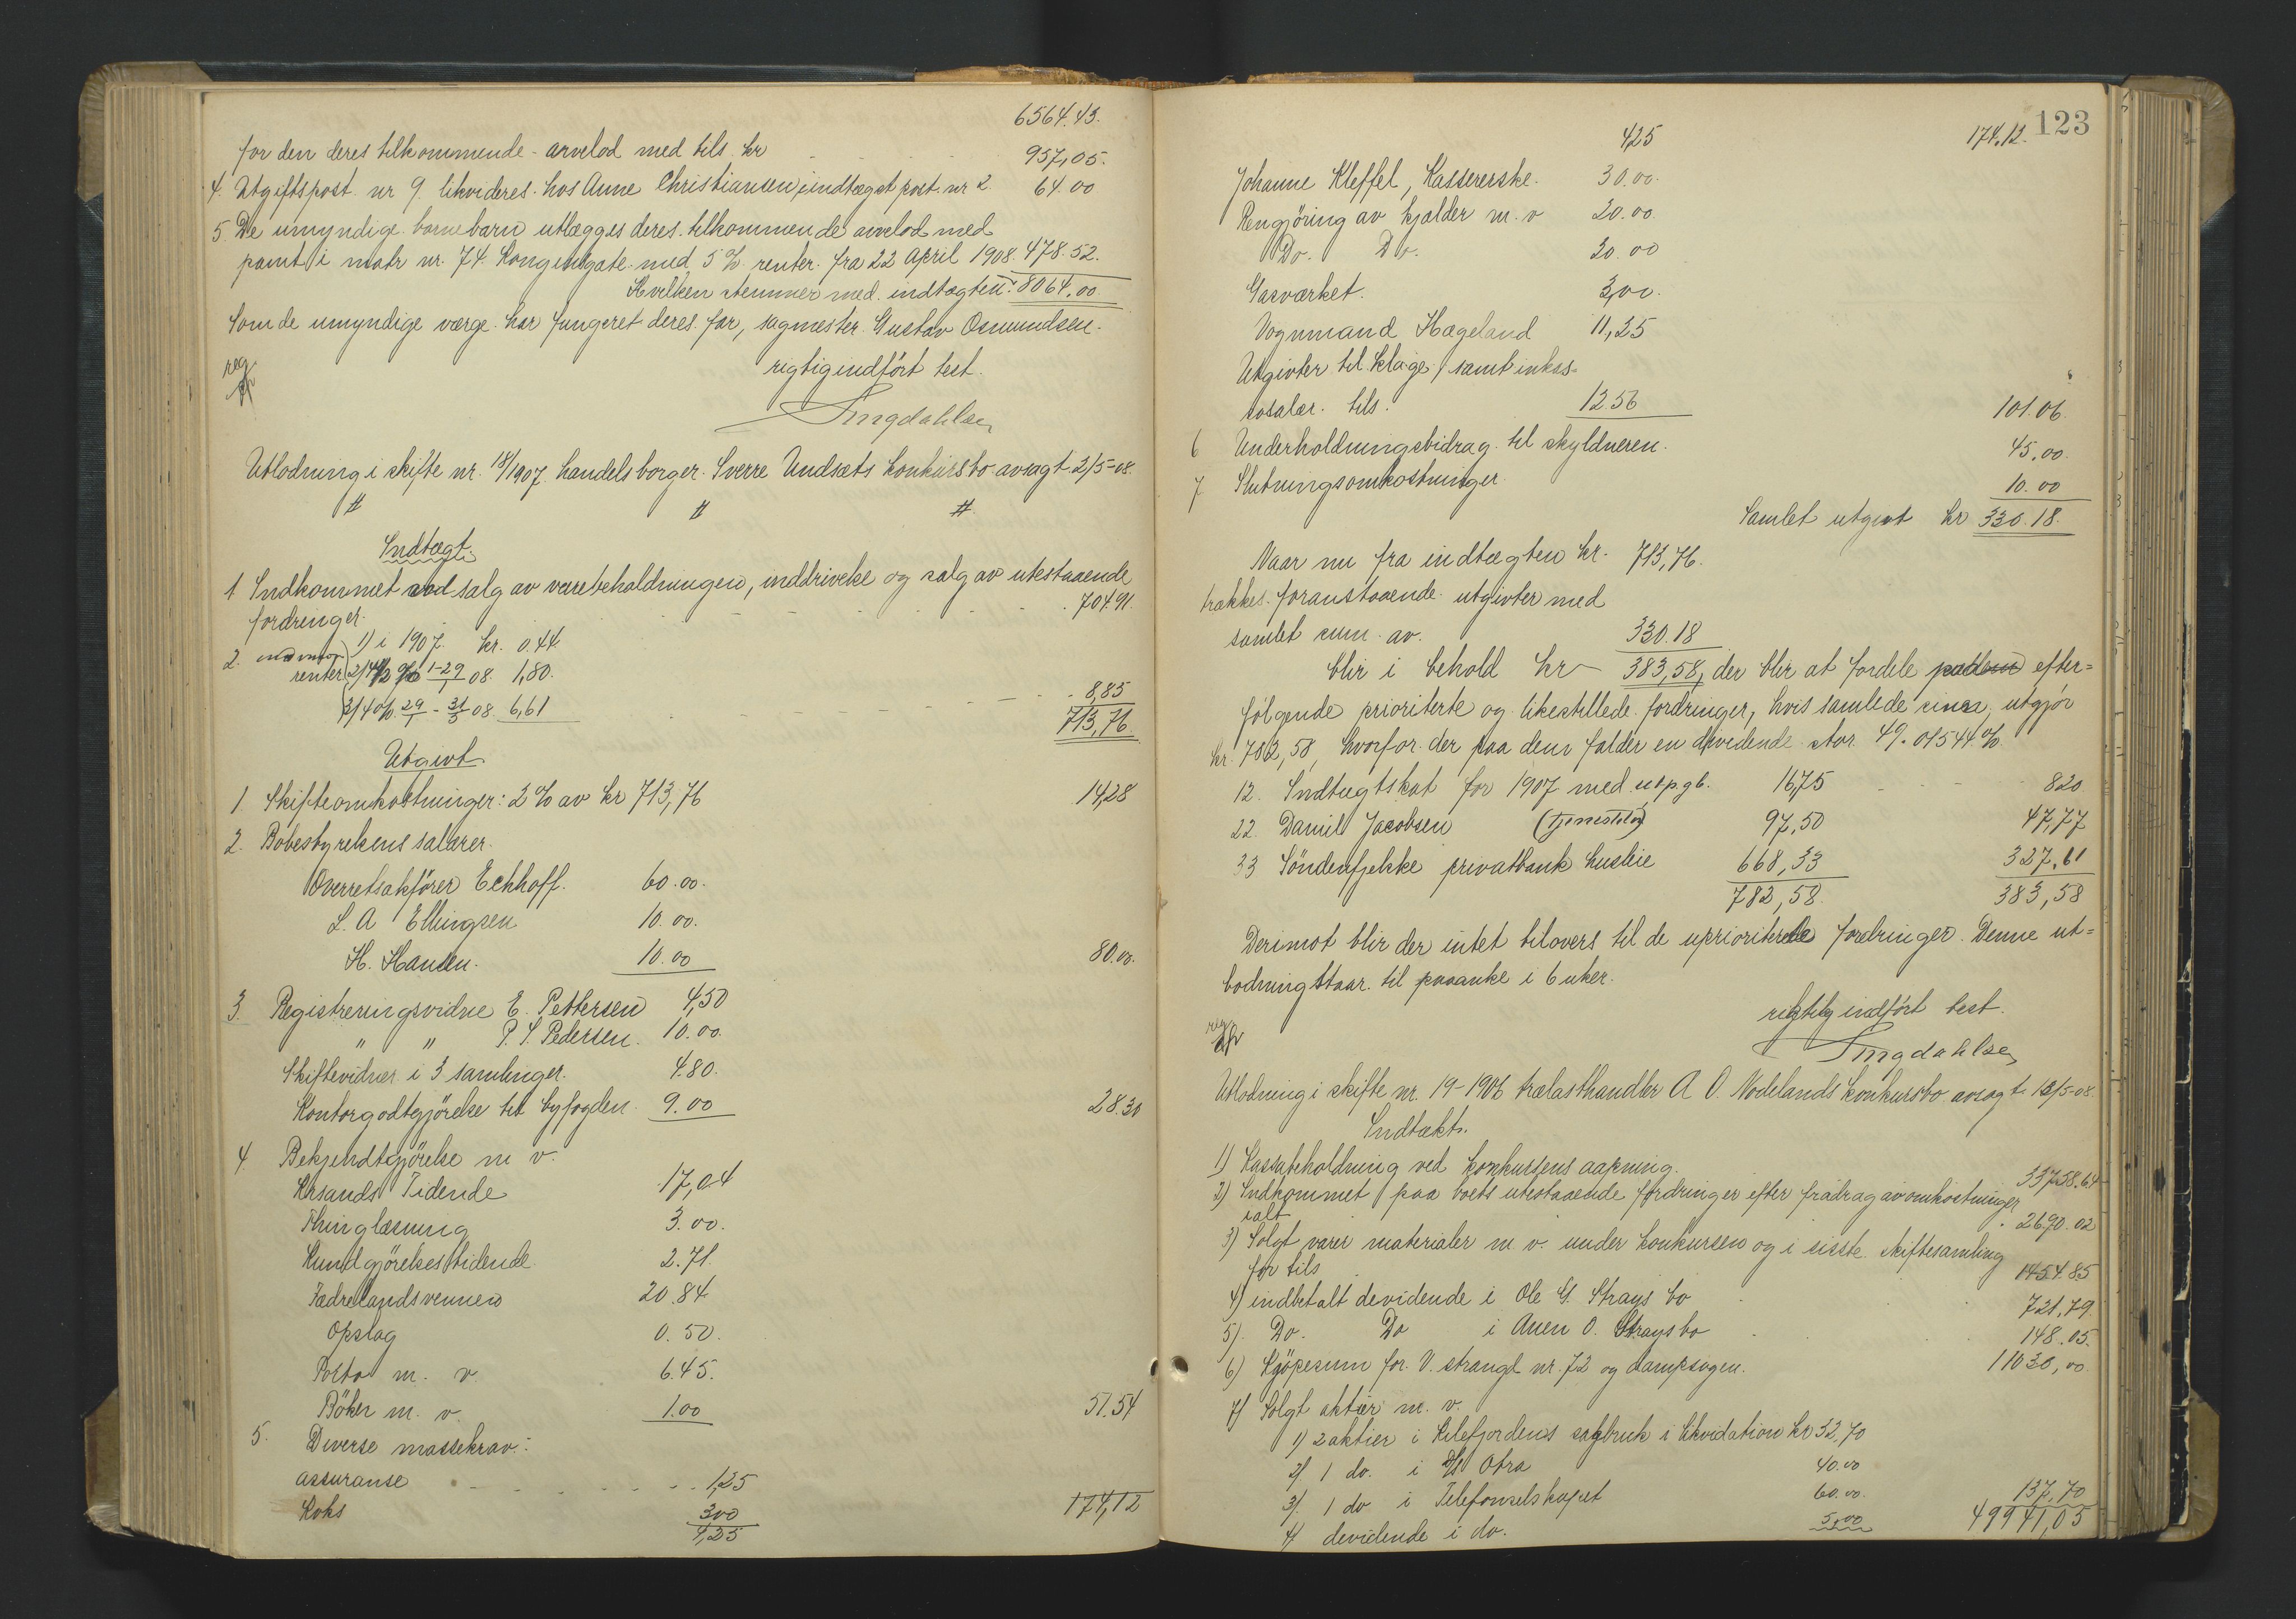 6564.43.
for den deres tilkommende arvelod med tils. kr 957,05.
4. Utgiftspost nr 9 likvideres hos Anne Christiansen, indtægt post nr 2. 64.00
5. De umyndige barnebarn utlægges deres tilkommende arvelod med
pant i matr nr. 74 Kongensgate med 5 % renter fra 22 April 1908. 478.52.
Hvilken stemmer med indtægten: 8064.00
Som de umyndige værge har fungeret deres far, sagmester Gustav Osmundsen.
reg
rigtig indført test.
Singdahlsen
Utlodning i skifte nr. 18/1907 handelsborger Sverre Undsets konkursbo avsagt 2/5-08.
Indtægt.
1 Indkommet ved salg av varebeholdningen, inddrivelse og salg av utestaaende
fordringer. 704.91.
2. renter 1) i 1907. kr. 0.44
2) 4 1/2 % 1-29/1 08. 1,80.
3) 4 % 29/1 - 31/3 08. 6,61 8,85
713,76
Utgivt.
1. Skifteomkostninger: 2 % av kr 713,76 14,28
2. Bobestyrelsens salærer.
Overretsakfører Eckhoff. 60.00.
L. A Ellingsen 10.00.
H. Hansen. 10.00 80.00.
3. Registreringsvidne E. Pettersen 4,50
" " P. S. Pedersen. 10.00.
Skiftevidner i 3 samlinger. 4.80.
Kontorgodtgjørelse til byfogden 9.00 28.30
4 Bekjendtgjørelse m v.
Krsands Tidende 17,04
Thinglæsning 3.00.
Kundgjørelsestidende 2.71.
Fædrelandsvennen 20.84
Opslag 0.50.
Porto m. v 6.45.
Bøker m. v. 1.00 51.54
5. Diverse massekrav:
assuranse 1,25
Koks 3,00 174,12
4,25
123
4,25 174.12.
Johanne Kleffel, Kassererske. 30.00.
Rengjøring av kjælder m. v 20.00.
Do. Do. 20.00
Gasværket. 3,00.
Vognmand Hægeland 11,25
Utgivter til klage, samt inkas-
sosalær. tils. 12.56 101.06.
6 Underholdningsbidrag til skyldneren. 45.00.
7 Slutningsomkostninger. 10.00
Samlet utgivt kr 330.18.
Naar nu fra indtægten kr. 713,76.
trækkes foranstaaende utgivter med
samlet sum av. 330.18
blir i behold kr 383,58, der blir at fordele efter-
følgende prioriterte og likestillede fordringer, hvis samlede sum utgjør
kr. 782,58, hvorfor der paa dem falder en dividende stor 49.01544 %.
12. Indtægtskat for 1907 med utp.gb. 16,75 8.20
22. Daniel Jacobsen (tjenesteløn) 97,50 47,77
33 Søndenfjelske privatbank husleie 668,33 327.61
782,58. 383,58
Derimot blir der intet tilovers til de uprioriterte fordringer. Denne ut-
lodning staar til paaanke i 6 uker.
rigtig indført test.
reg
Singdahlsen
Utlodning i skifte nr. 19-1906 trælasthandler A. O. Nodelands konkursbo avsagt 18/5-08.
Indtækt.
1) Kassabeholdning ved konkursens aapning. 33758.64
2) Indkommet paa boets utestaaende fordringer efter fradrag av omkostninger
ialt 2690.02
3) Solgt varer materialer m. v. under konkursen og i sisste skiftesamling
for tils 1454.85
4) indbetalt devidende i Ole G. Strays bo 721,79.
5). Do. Do i Anen O. Straysbo 148.05.
6) Kjøpesum for V. strandg. nr. 72 og dampsagen. 11030,00.
7) Solgt aktier m. v.
1) 2 aktier i Kilefjordens sagbruk i likvidation kr 32,70
2) 1 do. i D/S Otra 40.00
3). 1 do i Telefonselskapet 60.00. 137,70
4) devidende i do. 5,00 49941,05